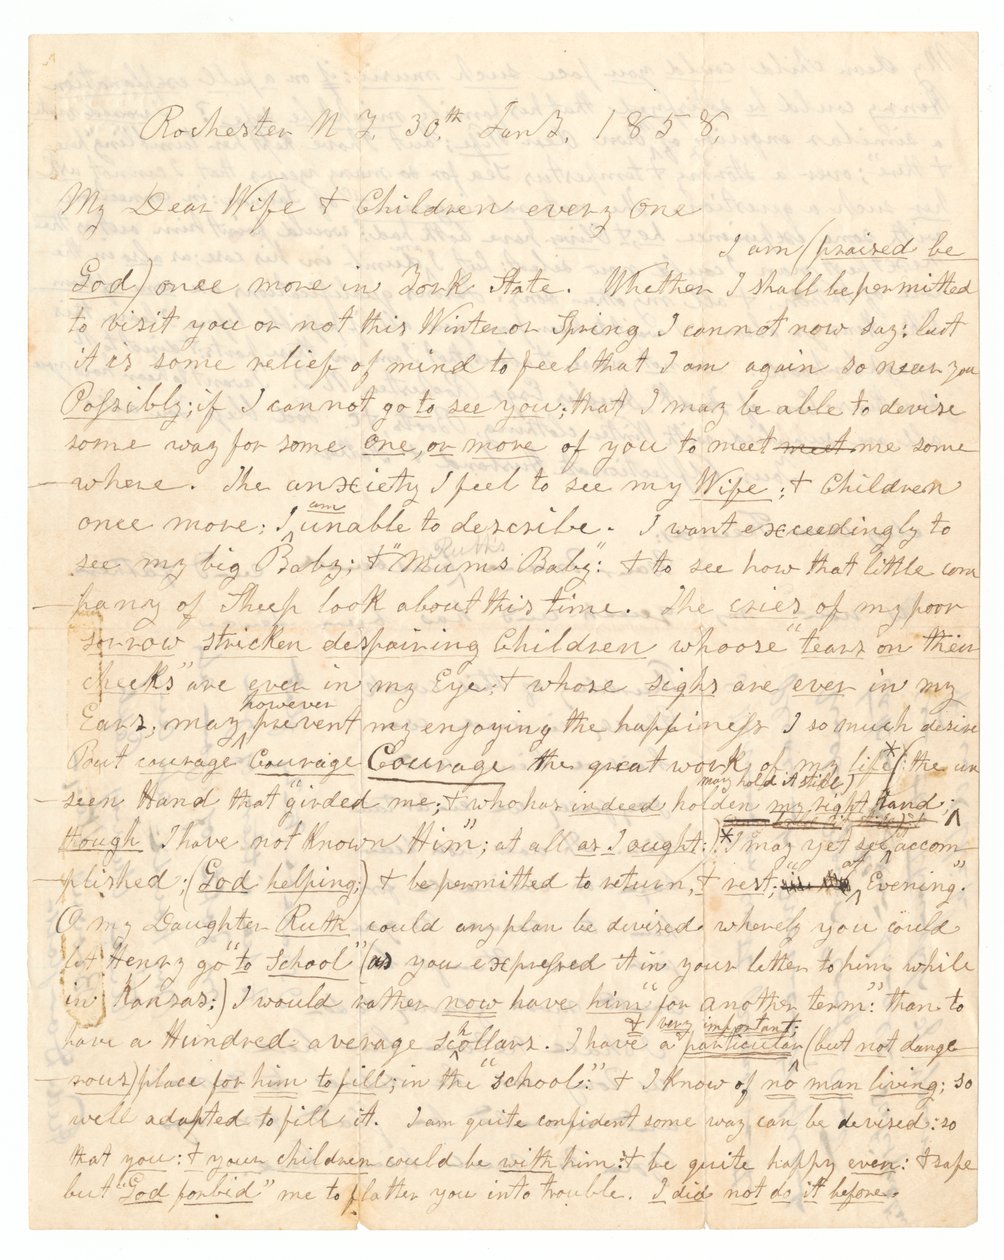 Rochester N Y, 30,th Jany, 1858,
My Dear Wife & Children every one
I am (praised be
God) once more in York State. Whether I shall be permitted
to visit you or not this Winter or Spring I cannot now say: but
it is some relief of mind to feel that I am again so near you
Possibly; if I cannot go to see you; that I may be able to devise
some way for some one, or more of you to meet meet me some
where. The anxiety I feel to see my Wife; & Children
once more; I am unable to describe. I want exceedingly to
see my big Baby; & "Ruths Mums Baby": & to see how that little com
pany of Sheep look about this time. The cries of my poor
sorrow stricken despairing Children whoose "tears on their
cheeks" are ever in my Eye; & whose sighs are ever in my
Ears; may however prevent my enjoying the happiness I so much desire
But courage Courage Courage the great work of my life* (the un
seen Hand that "girded me; & who has indeed holden my right hand may hold it still;)
though I have not known Him"; at all as I ought:)* I may yet see accom
plished; (God helping;) & be permitted to return, & "rest at Evening".
O my Daughter Ruth could any plan be devised whereby you could
let Henry go "to School" (as you expressed it in your letter to him while
in Kansas;) I would rather now have him "for another term:" than to
have a Hundred average schollars. I have a particular & very important; (but not dange
rous) place for him to fill; in the "school:" & I know of no man living; so
well adapted to fill it. I am quite confident some way can be devised; so
that you; & your children could be with him: & be quite happy even: & safe
but "God forbid" me to flatter you into trouble. I did not do it before.